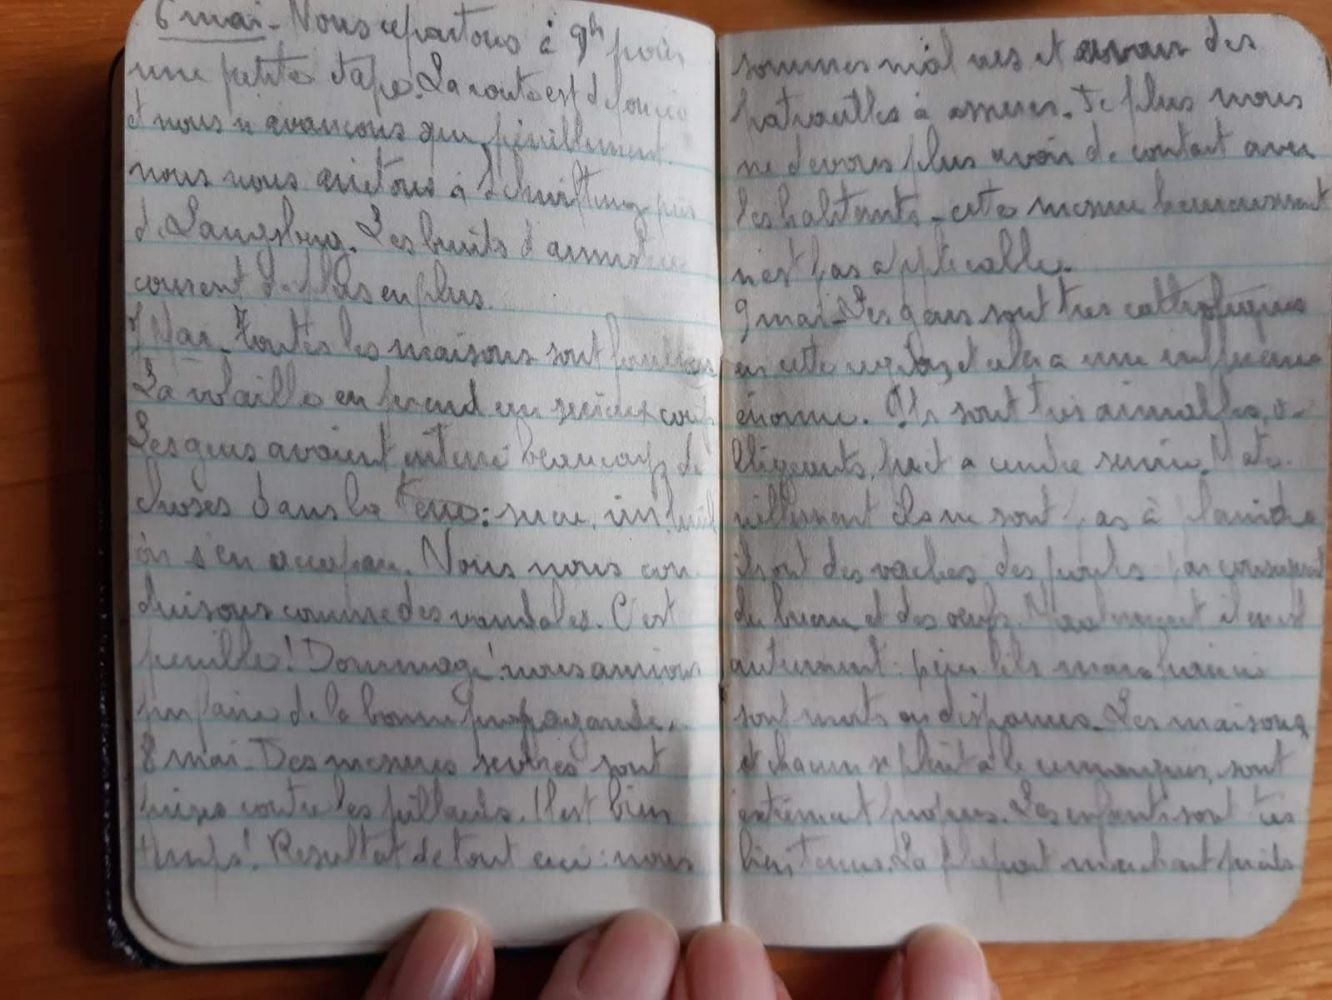 6 mai - Nous repartons à 9h pour
une petite étape. La route est défoncée
et nous n'avancons que péniblement
nous nous arrêtons à Schwifting près
de Langsberg. Les bruits d'armistice
courent de plus en plus.
7 Mai - toutes les maisons sont fouillées
La volaille en prend un sérieux coup
Les gens avaient enterré beaucoup de
choses dans la terre : sucre, vin
on s'en accapare. Nous nous con-
duisons comme des vandales. C'est
pénible ! Dommage ! nous aurions
pu faire de la bonne propagande.
8 mai - Des mesures sévères sont
prises contre les pillards. Il est bien
temps ! Résultat de tout ceci : nous
sommes mal vus et avons des
patrouilles à assurer. De plus nous
ne devons plus avoir de contact avec
les habitants - cette mesure heureusement
n'est pas applicable.
9 mai - Les gens sont très catholiques
en cette région et cela a une influence
énorme. Ils sont très aimables, o-
bligeants, prêt à rendre service. Maté-
riellement ils ne sont pas à plaindre
ils ont des vaches des poules
du beurre et des oeufs. Moralement il en est
autrement : pères fils maris
sont morts ou disparus. Les maisons,
et chacun se plait à le remarquer, sont
extrêment propres. Les enfants sont très
bien tenus. La plupart marchant pieds